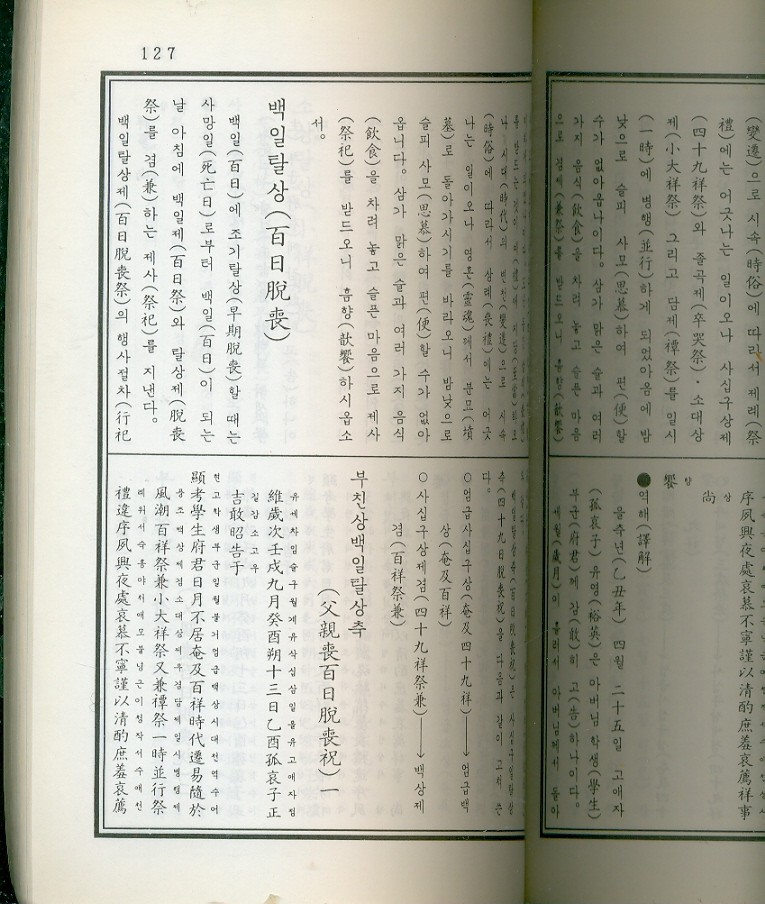 (變遷)으로 시속(時俗)에 따라서 제례(祭
禮)에는 어긋나는 일이오나 사십구상제
(四十九祥祭)와 졸곡제(卒哭祭)·소대상
제(小大祥祭) 그리고 담제(禫祭)를 일시
(一時)에 병행(並行)하게 되었아옴에 밤
낮으로 슬피 사모(思慕)하여 편(便)할
수가 없아옵나이다. 삼가 맑은 술과 여러
가지 음식(飮食)을 차려 놓고 슬픈 마음
으로 겸제(兼祭)를 받드오니 흠향(歆饗)
序夙興夜處哀慕不寧謹以清酌庶羞哀薦祥事
상
尙
향
饗
●역해(譯解)
을축년(乙丑年) 四월 二十五일 고애자
(孤哀子) 유영(裕英)은 아버님 학생(學生)
부군(府君)에 감(敢)히 고(告)하나이다.
세월(歲月)이 흘러서 아버님께서 돌아
127
나 시대(時代)의 변천(變遷)으로 시속
(時俗)에 따라서 상례(喪禮)에는 어긋
나는 일이오나 영혼(靈魂)께서 분모(墳
墓)로 돌아가시기를 바라오니 밤낮으로
슬피 사모(思慕)하여 편(便)할 수가 없아
옵니다. 삼가 맑은 술과 여러 가지 음식
(飮食)을 차려 놓고 슬픈 마음으로 제사
(祭祀)를 받드오니 흠향(歆饗)하시옵소
서.
백일탈상(百日脫喪)
백일(百日)에 조기탈상(早期脫喪)할 때는
사망일(死亡日)로부터 백일(百日)이 되는
날 아침에 백일제(百日祭)와 탈상제(脫喪
祭)를 겸(兼)하는 제사(祭祀)를 지낸다.
백일탈상제(百日脫喪祭)의 행사절차(行祀
축(四十九日脫喪祝)을 다음과 같이 고쳐 쓴
다.
○엄급사십구상(奄及四十九祥)―→엄급백
상(奄及百祥)
○사십구상제겸(四十九祥祭兼)―→백상제
겸(百祥祭兼)
부친상백일탈상축
(父親喪百日脫喪祝) 一
유세차임술구월계유삭십삼일을유고애자정
維歲次壬戌九月癸酉朔十三日乙酉孤哀子正
길감소고우
吉敢昭告于
현고학생부군일월불거엄급백상시대천역수어
顯考學生府君日月不居奄及百祥時代遷易隨於
풍조백상제겸소대상제우겸담제일시병행제
風潮百祥祭兼小大祥祭又兼禫祭一時並行祭
례위서숙흥야처애모불녕근이청작서수애천
禮違序夙興夜處哀慕不寧謹以清酌庶羞哀薦